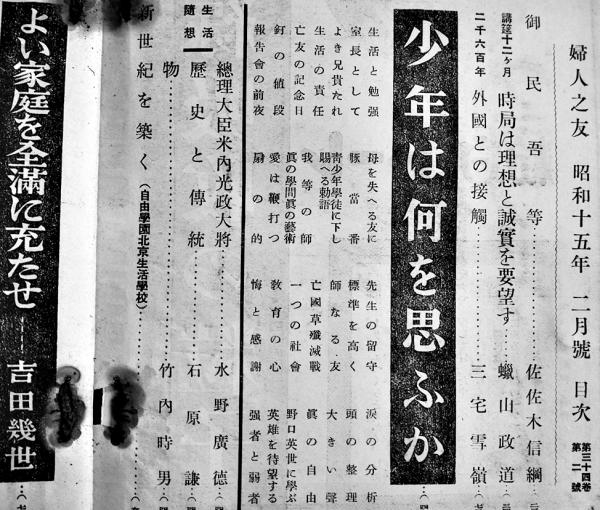 婦人之友 昭和十五年 二月號 目次 第三十四卷 第二號
御民吾等 佐佐木信綱
講筵十二ヶ月 時局は理想と誠實を要望す 蠟山政道
二千六百年 外國との接觸 三宅雪嶺
少年は何を思ふか
生活と勉强 母を失へる友に 先生の留守 淚の分析
室長として 豚當番 標準を高く 頭の整理
よき兄貴たれ 靑少年學徒に下し賜へる勅語 師なる友 大きい聲
生活の責任 我等の師 亡國草殲滅戰 眞の自由
亡友の記念日 眞の學問眞の藝術 一つの社會 野口英世に學ぶ
釘の値段 愛は鞭打つ 敎育の心 英雄を待望する
報告會の前夜 扇の的 悔と感謝 强者と弱者
生活隨想
總理大臣米內光政大將 水野廣德
歷史と傳統 石原謙
物 竹內時男
新世紀を築く (自由學園北京生活學校)
よい家庭を全滿に充たせ 吉田幾世